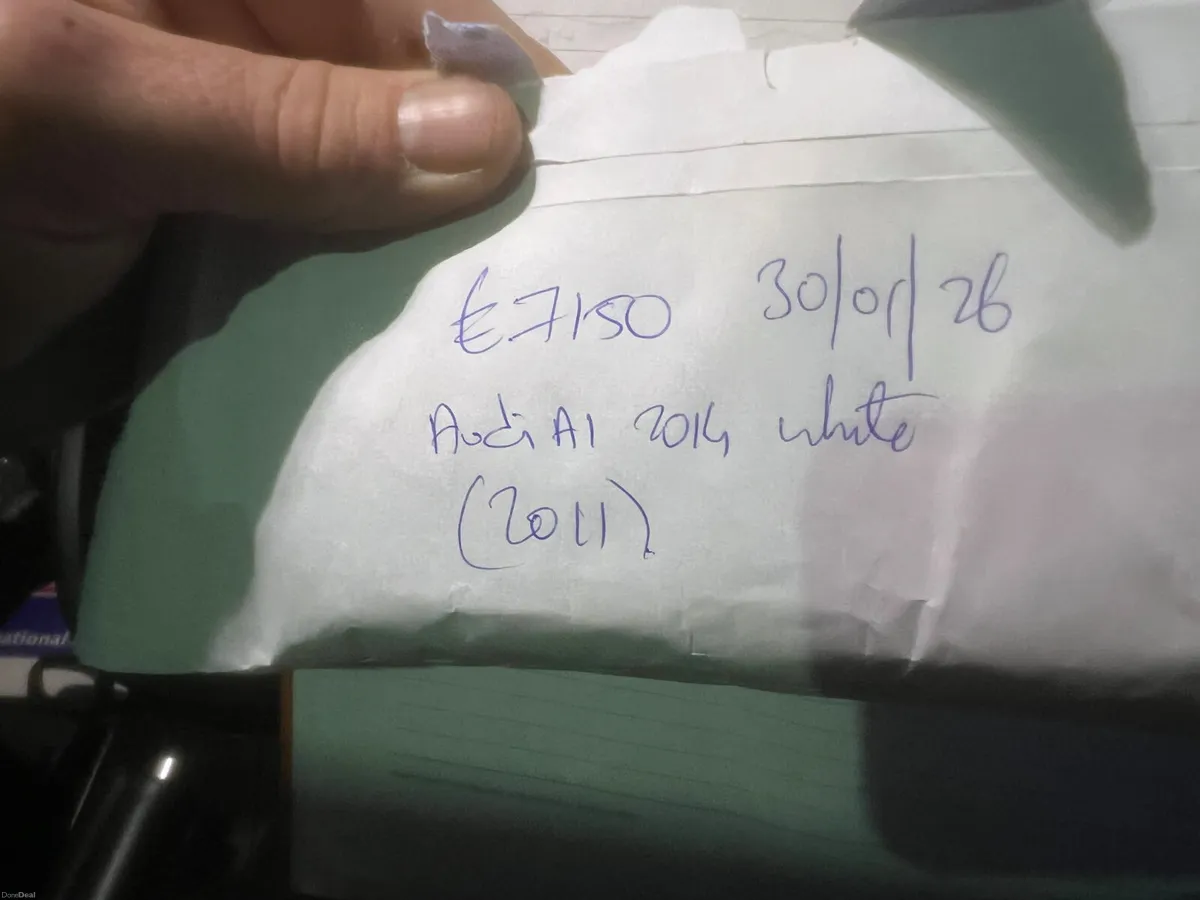 €7150 30/01/26
Audi A1 2014 white
(2011)
ational
DoneDeal